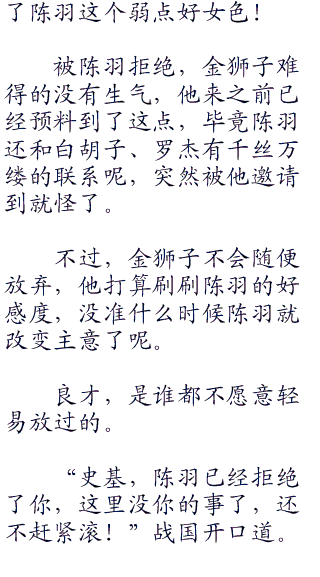 了陈羽这个弱点好女色！
被陈羽拒绝，金狮子难
得的没有生气，他来之前已
经预料到了这点，毕竟陈羽
还和白胡子、罗杰有千丝万
缕的联系呢，突然被他邀请
到就怪了。
不过，金狮子不会随便
放弃，他打算刷刷陈羽的好
感度，没准什么时候陈羽就
改变主意了呢。
良才，是谁都不愿意轻
易放过的。
“史基，陈羽已经拒绝
了你，这里没你的事了，还
不赶紧滚！”战国开口道。